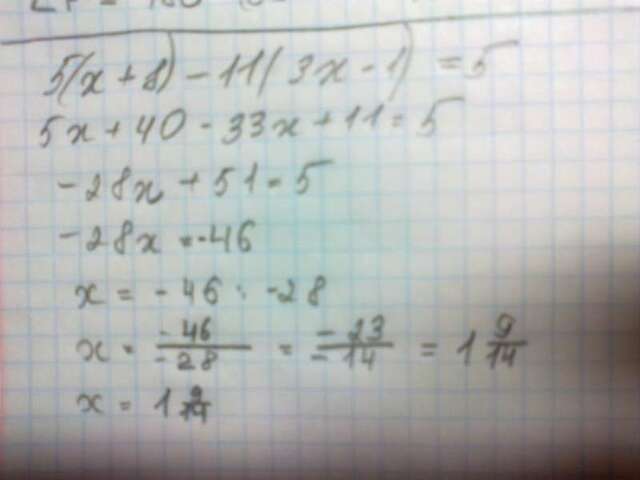 5(x+8)-11(3x-1)=5
5x+40-33x+11=5
-28x+51=5
-28x=-46
x=-46:-28
x=-46/-28=-23/-14=1 9/14
x=1 9/14